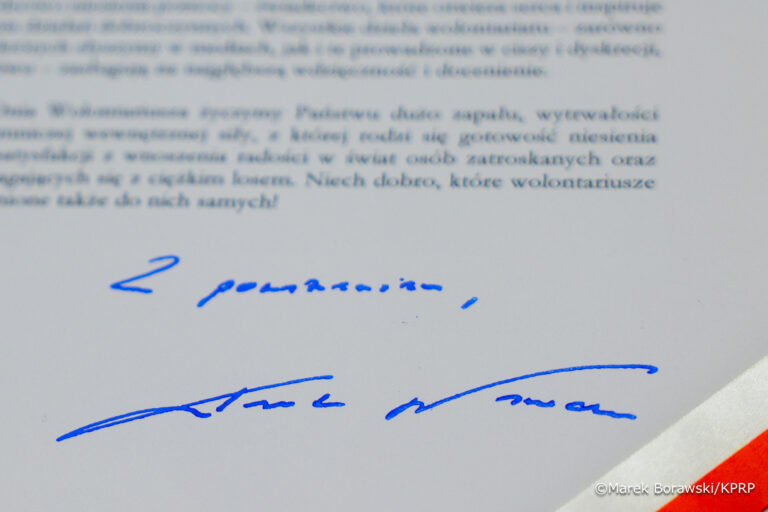 – świadectwo, które otwiera serca i inspiruje
dobroczynnych. Wszystkie dzieła wolontariatu – zarówno
których słyszymy w mediach, jak i te prowadzone w ciszy i dyskrecji,
– zasługują na najgłębszą wdzięczność i docenienie.
Dnia Wolontariusza życzymy Państwu dużo zapału, wytrwałości
wewnętrznej siły, z której rodzi się gotowość niesienia
satysfakcji z wnoszenia radości w świat osób zatroskanych oraz
agających się z ciężkim losem. Niech dobro, które wolontariusze
także do nich samych!
Z poważaniem,
©Marek Borawski/KPRP